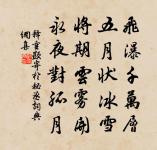 飛瀑千萬層
五月狀冰雪
將期雲霧開
永夜對孤月
釋重顯寄於秘丞詞典
網喜